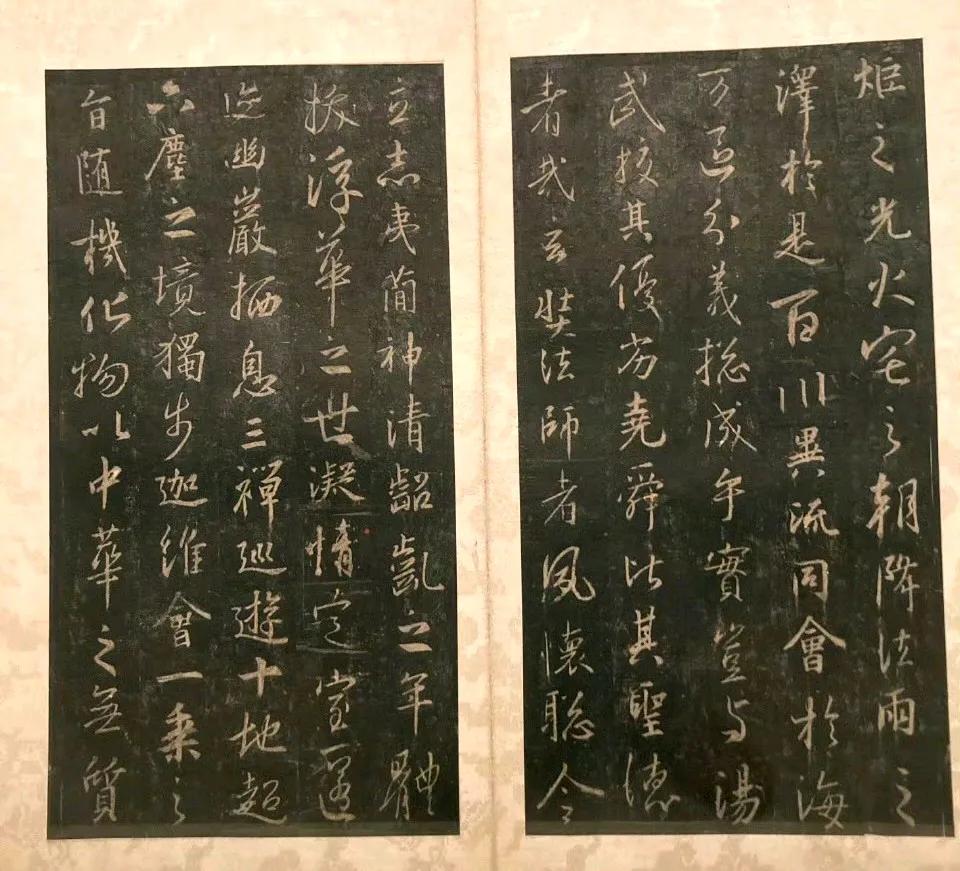 炬之光火宅之朝降法雨之
澤於是百川異流同會於海
万區分義揔成乎實豈与湯
武校其優劣堯舜比其聖德
者哉玄奘法師者夙懷聡令
立志夷簡神清齠齔之年體
拔浮華之世凝情定室匿
迹幽巖栖息三禪巡遊十地超
六塵之境獨步迦維會一乘之
旨随機化物以中華之無質